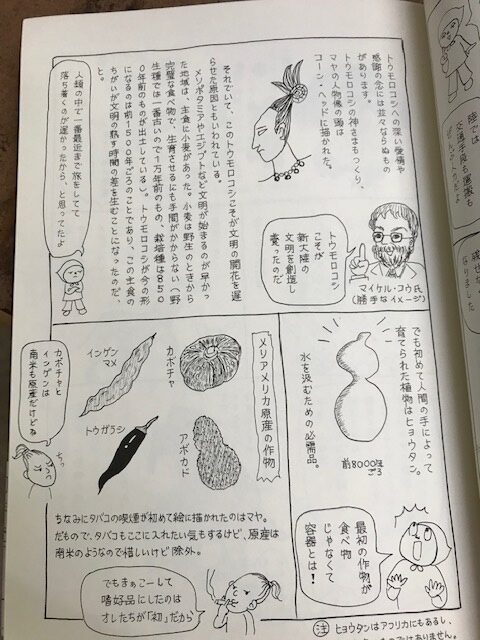 トウモロコシへの深い愛情や
感謝の念には並々ならぬもの
があります。
トウモロコシの神さまもつくり、
マヤの人物像の頭は
コーン・ヘッドに描かれた。
トウモロコシ
こそが
新大陸の
文明を創造し
養ったのだ
マイケル・コウ氏
(勝手なイメージ)
それでいて、このトウモロコシこそが文明の開花を遅
らせた原因ともいわれている。
メソポタミアやエジプトなど文明が始まるのが早かっ
た地域は、主食に小麦があった。小麦は野生のときから
完璧な食べ物で、生育させるにも手間がかからない(野
生種では一番古いので1万年前のもの、栽培種は850
0年前のものが出土している)。トウモロコシが今の形
になるのは前1500年ごろのことであり、この主食の
ちがいが文明の熟す時間の差を生むことになったのだ、
と。
人類の中で一番最近まで旅をしてて
落ち着くのが遅かったから、と思ってたよ
でも初めて人間の手によって
育てられた植物はヒョウタン。
水を汲むための必需品。
前8000年
ごろ
最初の作物が
食べ物
じゃなくて
容器とは!
メソアメリカ原産の作物
カボチャ
インゲン
マメ
アボカド
トウガラシ
カボチャと
インゲンは
南米も原産だけどね
ちっ
ちなみにタバコの喫煙が初めて絵に描かれたのはマヤ。
だもので、タバコもここに入れたい気もするけど、原産は
南米のようなので惜しいけど除外。
でもまぁこーして
嗜好品にしたのは
オレたちが「初」だから
注 ヒョウタンはアフリカにもあるし、